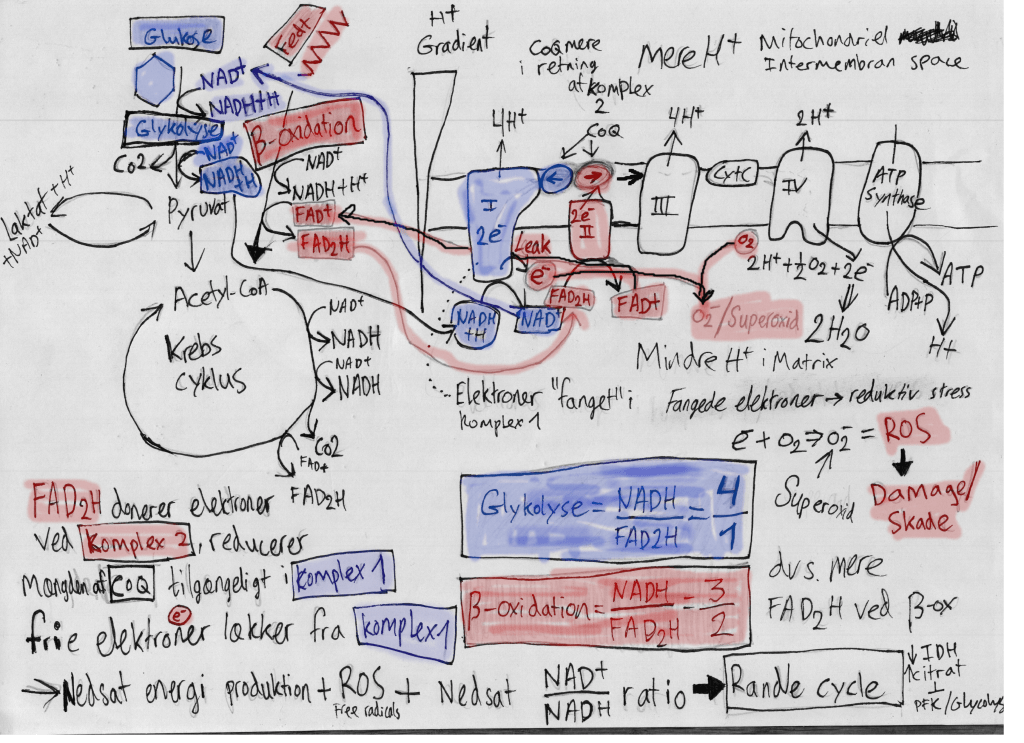 Glukose
Fedt
NAD+
NADH+H
Glykolyse
β-oxidation
Co2
NAD+
NADH
+H
NAD+
NADH+H+
FAD+
FAD2H
Laktat + H+
+NAD+
Pyruvat
Acetyl-CoA
Krebs
cyklus
NAD+
NADH
NAD+
NADH
Co2
FAD+
FAD2H
H+
Gradient
CoQ mere
i retning
af komplex
2
CoQ
Mere H+
Mitochondriel
Intermembran space
4H+
4H+
2H+
I
2e-
2e-
II
III
CytC
IV
ATP
Synthase
Leak
e-
FAD2H
FAD+
NADH
+H
NAD+
O2
O2-/Superoxid
2H+ + ½O2 + 2e-
2H2O
ATP
ADP+P
H+
Mindre H+ i Matrix
Elektroner "fanget" i
Komplex 1
Fangede elektroner → reduktiv stress
e- + O2 ⇒ O2- = ROS
Superoxid
Damage/
Skade
FAD2H donerer elektroner
ved Komplex 2, reducerer
Mængden af CoQ tilgængeligt i Komplex 1
e-
frie elektroner lækker fra komplex 1
Glykolyse = NADH/FAD2H = 4/1
β-oxidation = NADH/FAD2H = 3/2
dvs. mere
FAD2H ved β-ox
→ Nedsat energi produktion + ROS + Nedsat NAD+/NADH ratio → Randle cycle
Free radicals
↓ IDH
↑ citrat
⊥
PFK/Glycolys